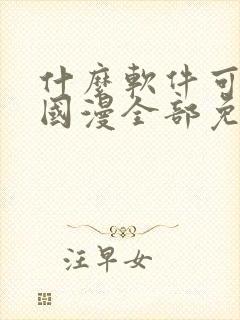 什麼軟件可
國漫全部免
汪早女